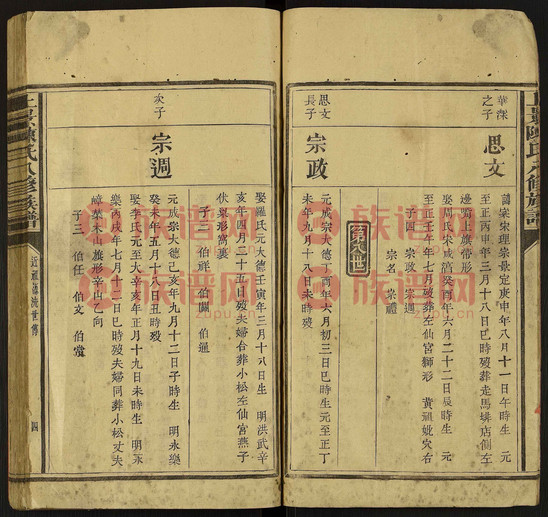 上景陳氏八修族譜
華深
之子
思文
南宋宋理宗景定庚申年八月十一日午時生 元
至正丙申年三月十八日巳時歿葬走馬墳店側左
邊塘上旗帶形
娶周氏宋咸淳癸酉年六月二十二日辰時生 元
至正壬午年七月歿葬左仙宮獅形 黃頑妣穴右
子四 宗政 宗週
宗名 宗禮
第八世
思文
長子
宗政
元成宗大德丁酉年六月初三日巳時生元至正丁
未年九月十八日未時歿
娶羅氏元大德壬寅年三月十八日生 明洪武辛
亥年四月二十五日時歿夫婦合葬小松左仙宮燕子
伏梁形窩裏
子三 伯祥 伯圖 伯通
次子
宗週
元成宗大德己亥年九月十二日子時生 明永樂
癸未年五月十八日丑時歿
娶李氏元至大辛亥年正月十九日未時生 明永
樂丙戌年七月十二日巳時歿夫婦同葬小松丈夫
嶂葉禾山旗形辛山乙向
子三 伯任 伯文 伯賞
上景陳氏八修族譜
近祖遠流世傳
四
族谱网
zupu.cn